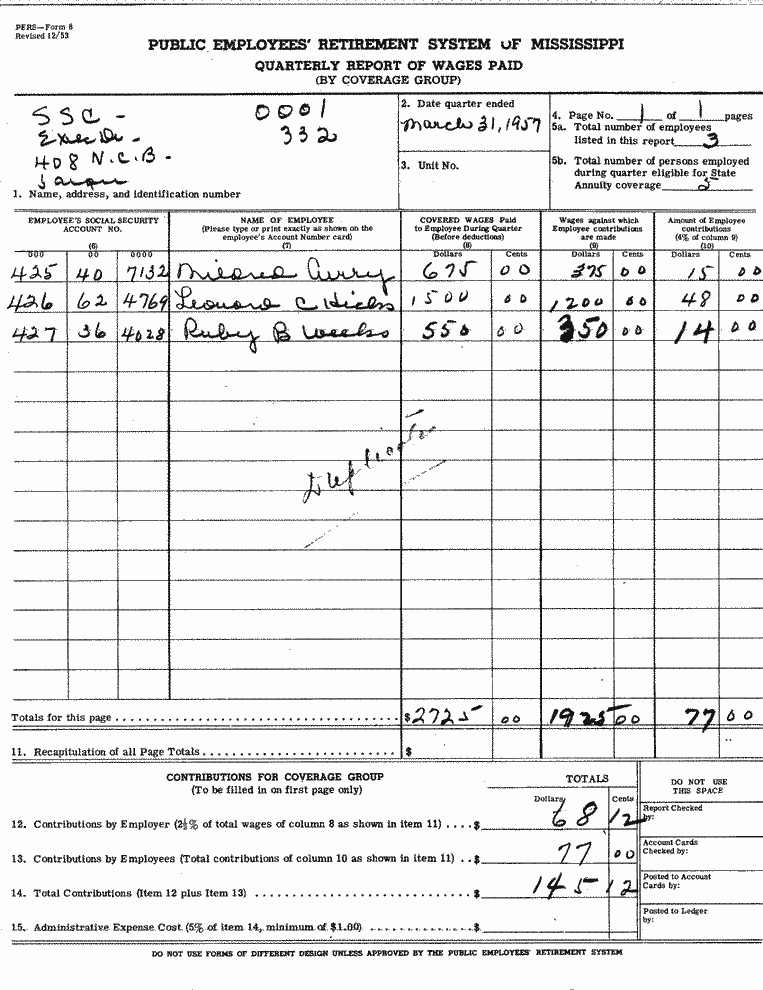 PERS—Form 8
Revised 12/53
PUBLIC EMPLOYEES' RETIREMENT SYSTEM OF MISSISSIPPI
QUARTERLY REPORT OF WAGES PAID
(BY COVERAGE GROUP)
SSC - 0001
332
408 N.C.B.
1. Name, address, and identification number
2. Date quarter ended
March 31, 1957
3. Unit No.
4. Page No. 1 of 1 pages
5a. Total number of employees
listed in this report 3
5b. Total number of persons employed
during quarter eligible for State
Annuity coverage 5
EMPLOYEE'S SOCIAL SECURITY ACCOUNT NO. (6)
NAME OF EMPLOYEE (Please type or print exactly as shown on the employee's Account Number card) (7)
COVERED WAGES Paid to Employee During Quarter (Before deductions) (8)
Wages against which Employee contributions are made (9)
Amount of Employee contributions (4% of column 9) (10)
000 00 0000 Dollars Cents Dollars Cents Dollars Cents
425 40 7132 Mildred Curry 675 00 375 00 15 00
426 62 4769 Leonard C Hicks 1500 00 1200 00 48 00
427 36 4028 Ruby B Weeks 550 00 350 00 14 00
Duplicate
Totals for this page $ 2725 00 1925 00 77 00
11. Recapitulation of all Page Totals $
CONTRIBUTIONS FOR COVERAGE GROUP
(To be filled in on first page only)
TOTALS
Dollars Cents
DO NOT USE
THIS SPACE
12. Contributions by Employer (2½% of total wages of column 8 as shown in item 11) .... $ 68 12
Report Checked
by:
13. Contributions by Employees (Total contributions of column 10 as shown in item 11) .. $ 77 00
Account Cards
Checked by:
14. Total Contributions (Item 12 plus Item 13) $ 145 12
Posted to Account
Cards by:
15. Administrative Expense Cost (5% of item 14, minimum of $1.00) $
Posted to Ledger
by:
DO NOT USE FORMS OF DIFFERENT DESIGN UNLESS APPROVED BY THE PUBLIC EMPLOYEES' RETIREMENT SYSTEM